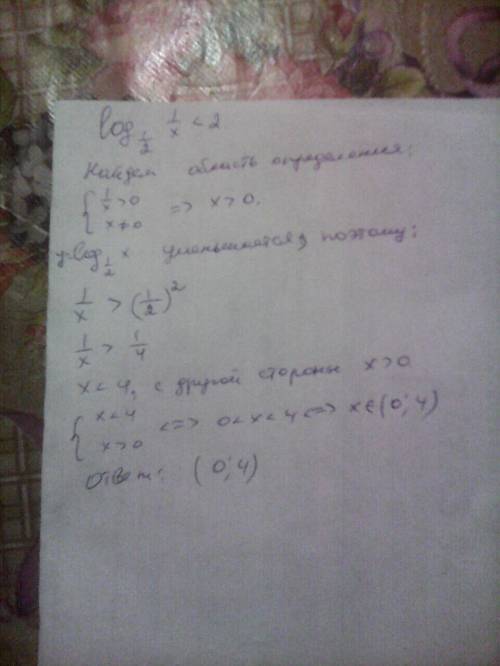 log_{1/2} 1/x < 2
Найдем область определения:
{ 1/x > 0
x ≠ 0 => x > 0.
y = log_{1/2} x уменьшается, поэтому:
1/x > (1/2)^2
1/x > 1/4
x < 4, с другой стороны x > 0
{ x < 4
x > 0 <=> 0 < x < 4 <=> x ∈ (0; 4)
Ответ: (0; 4)